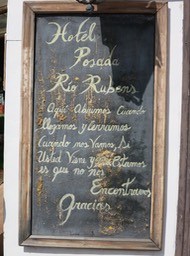 Hotel
Posada
Rio Rubens
Aqui Abrimos Cuando
llegamos y Cerramos
Cuando nos Vamos, Si
Usted Viene y no Estamos
es que no nos
Encontramos
Gracias